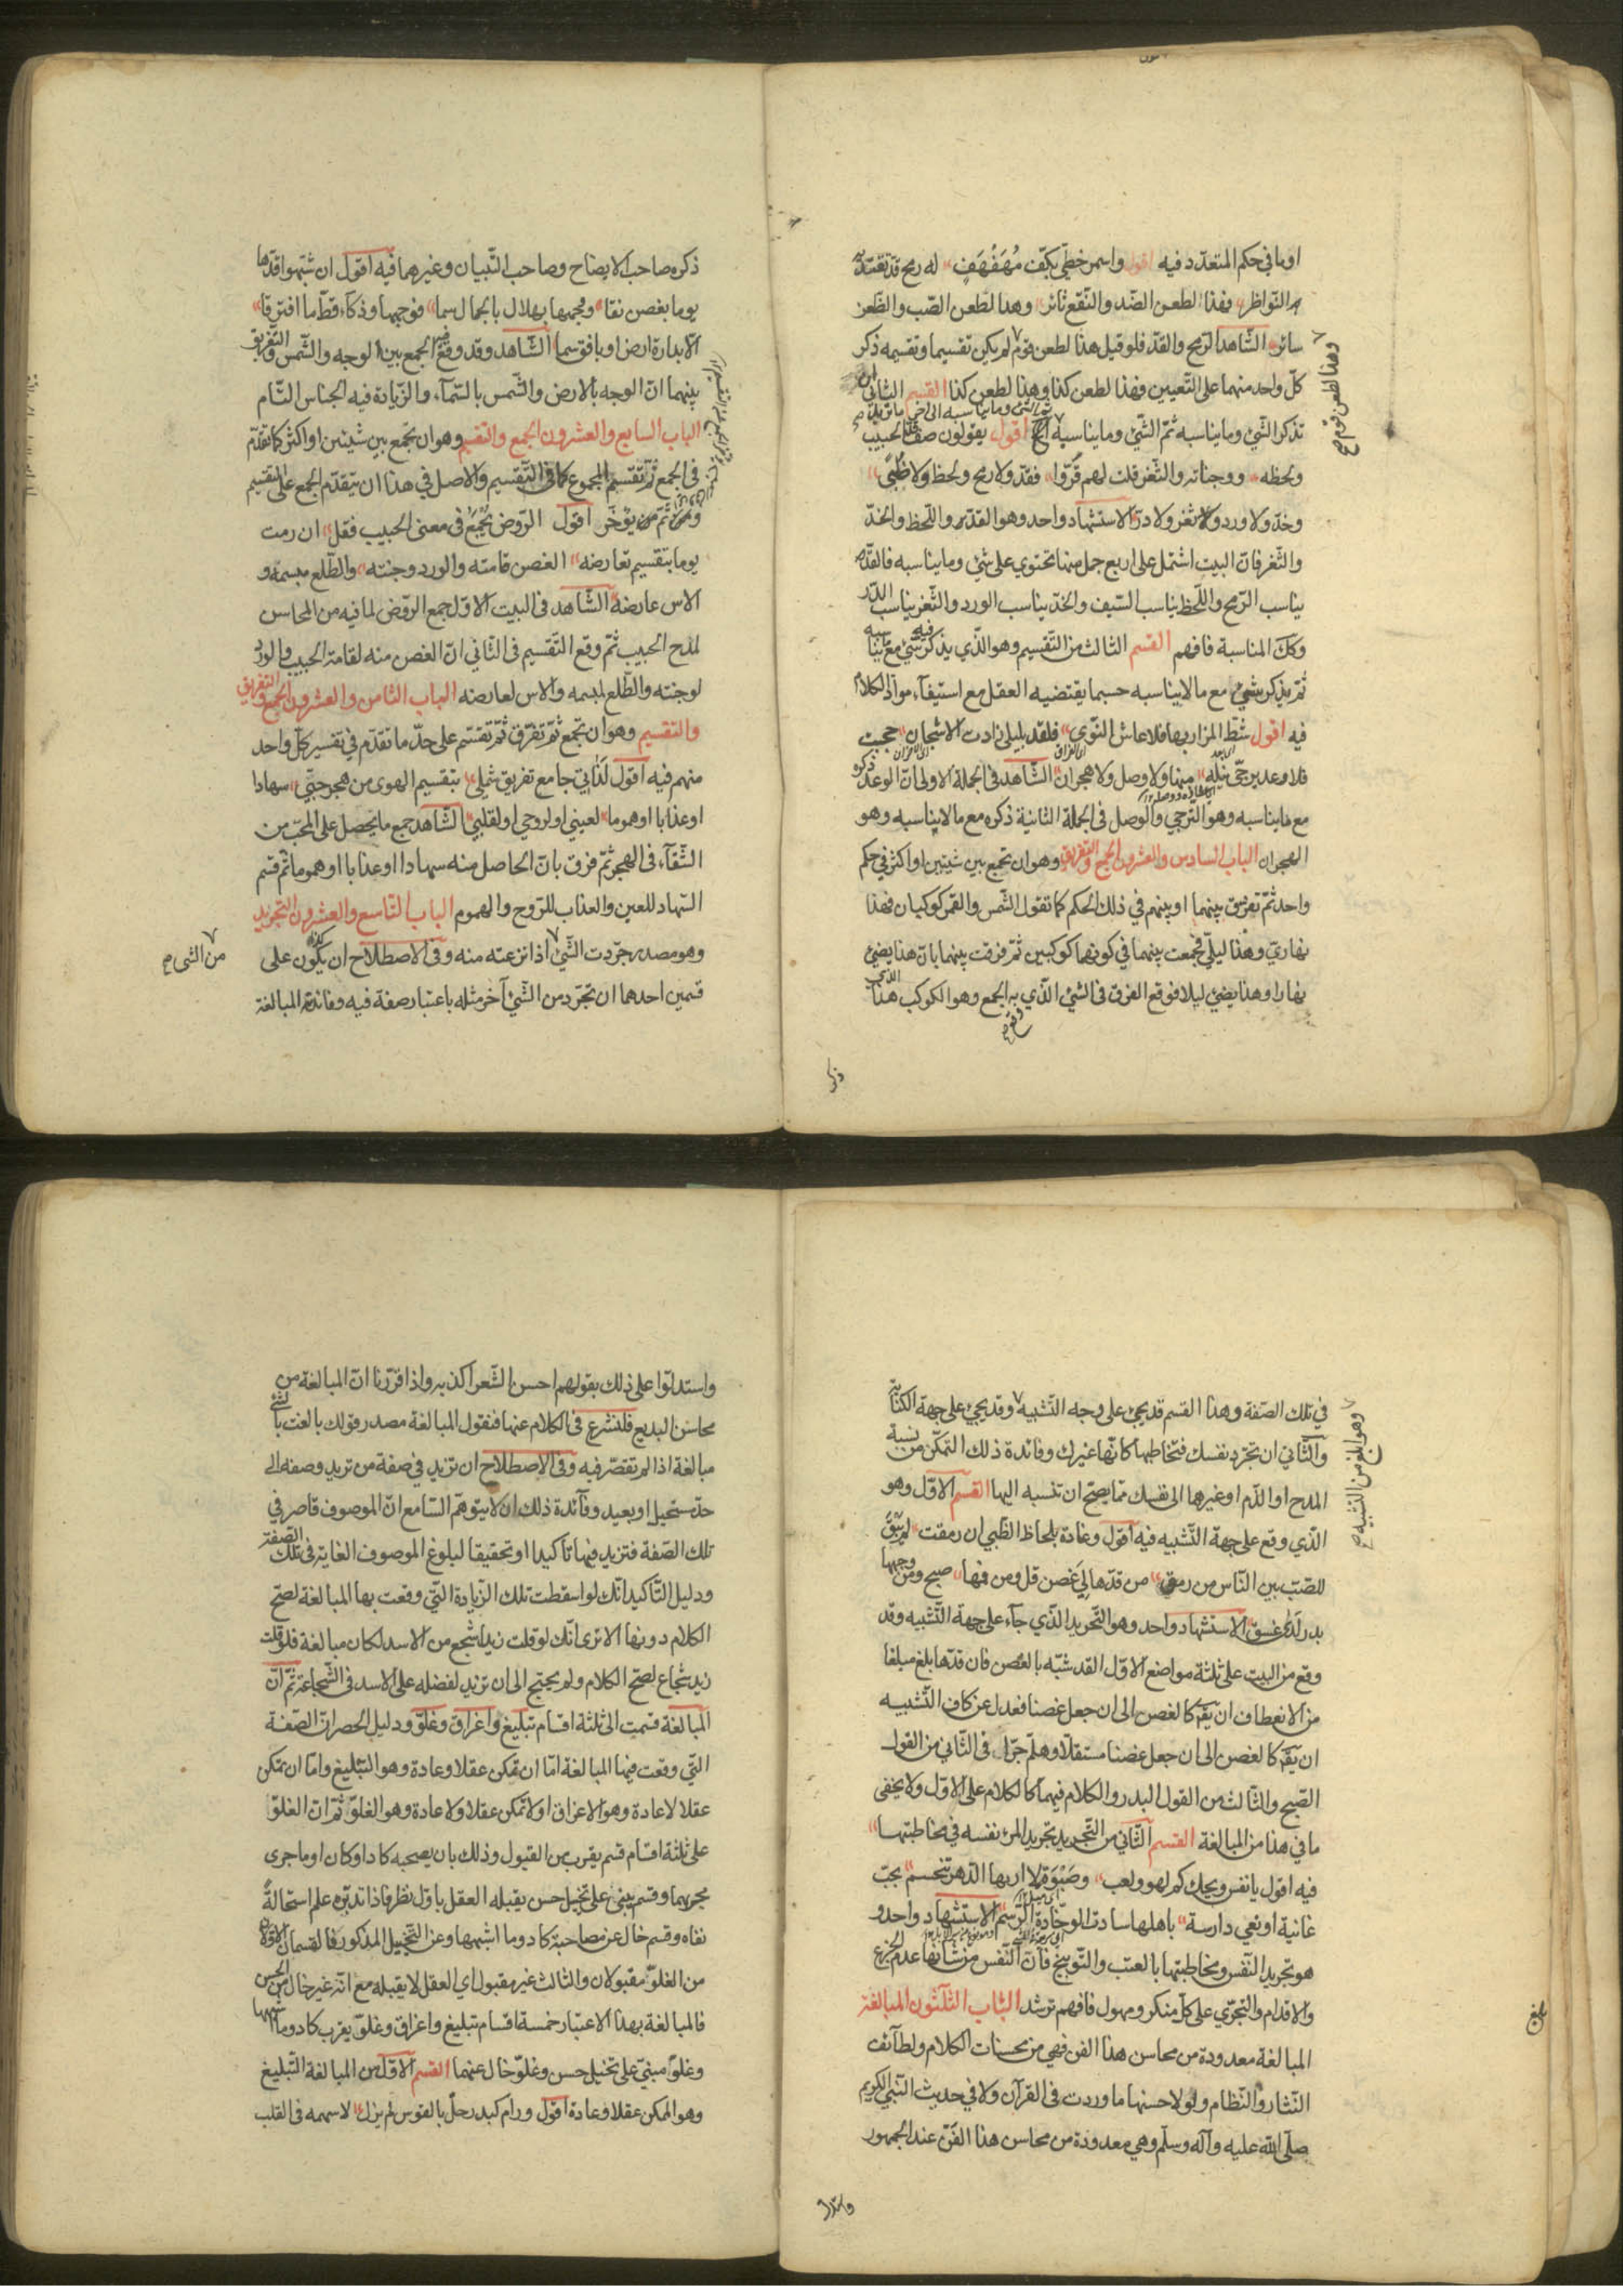 او ما في حكم المتعدّد فيه اقول واسمر خطيّ بكفّ مُهَفْهَفٍ له رمح قدّ تعتدّه
النّواظر فهذا لطعن الضّد والنّقع ثائر وهذا لطعن الصّب والظّعن
سائر الشّاهد الرّمح والقدّ فلو قيل هذا لطعن قوم لم يكن تقسيما وتقسيمه ذكر
وهذا لطعن قوم صح
كلّ واحد منهما على التّعيين فهذا لطعن كذا وهذا لطعن كذا القسم الثاني ان
تذكر الشّئ وما يناسبه ثمّ الشّئ وما يناسبه اقول يقولون صف الحبيب
ولحظه ووجناته والثّغر قلت لهم قَرّوا فقدّ ولا رمح ولحظ ولا ظُبىً
وخدّ ولا ورد ولا ثغر ولا درّ الاستشهاد واحد وهو القدّ واللّحظ والخدّ
والثّغر فانّ البيت اشتمل على اربع جمل منها تحتوي على شئ وما يناسبه فالقدّ
يناسب الرّمح واللّحظ يناسب السّيف والخدّ يناسب الورد والثّغر يناسب الدّر
وتلك المناسبة فافهم القسم الثالث من التّقسيم وهو الّذي يذكر فيه شئ مع ما يناسبه
ثمّ يذكر شئ مع ما لا يناسبه حسبما يقتضيه العقل مع استيفآء موادّ الكلام
فيه اقول شطّ المزار بها فلا عاش النّوى فلقد بليلى زادت الاشجان حجبت
فلا وعد يرجّى نيله منها ولا وصل ولا هجران الشّاهد في الجملة الاولى انّ الوعد ذكره
مع ما يناسبه وهو الترجي والوصل في الجملة الثانية ذكره مع ما لا يناسبه وهو
الهجران الباب السادس والعشرون الجمع والتفريق وهو ان تجمع بين شيئين او اكثر في حكم
واحد ثمّ تفرّق بينهما او بينهم في ذلك الحكم كما تقول الشّمس والقمر كوكبان فهذا
نهاريّ وهذا ليليّ فجمعت بينهما في كونهما كوكبين ثمّ فرقت بينهما بانّ هذا يضئ
نهارا وهذا يضئ ليلا فوقع الفرق في الشئ الّذي به الجمع وهو الكوكب هذا الذي
وقع
ذكر
ذكره صاحب الايضاح وصاحب التّبيان وغيرهما فيه اقول ان شبّهوا قدّها
يوما بغصن نقا ووجهها بهلال بالجمال سما فوجهها وذكآء قطّ ما افترقا
الا بدارة ارض او بافق سما الشّاهد وقد وقع فيه الجمع بين الوجه والشّمس والتّفريق
بينهما انّ الوجه بالارض والشّمس بالسّمآء والزّيادة فيه الجناس التّام
الباب السابع والعشرون الجمع والتقسيم وهو ان تجمع بين شيئين او اكثر كما تقدّم
في الجمع ثمّ تقسم المجموع كما في التّقسيم والاصل في هذا ان يتقدّم الجمع على التقسيم
ومن ثمّ من يؤخّر اقول الرّوض يُجْمَعُ في معنى الحبيب فقل ان رمت
يوما بتقسيم تعارضه الغصن قامته والورد وجنته والطّلع مبسمه و
الاس عارضه الشّاهد في البيت الاوّل جمع الرّوض لما فيه من المحاسن
لمدح الحبيب ثمّ وقع التّقسيم في الثّاني انّ الغصن منه لقامة الحبيب والورد
لوجنته والطّلع لمبسمه والاس لعارضه الباب الثامن والعشرون الجمع والتفريق
والتقسيم وهو ان تجمع ثمّ تفرّق ثمّ تقسّم على حدّ ما تقدّم في تفسير كلّ واحد
منهم فيه اقول لَدَاني جامع تفريق شملي بتقسيم الهوى من هجر حبّي سهادا
او عذابا او هموما لعيني او لروحي او لقلبي الشّاهد جمع ما يحصل على المحبّ من
الشّقآء في الهجر ثمّ فرق بانّ الحاصل منه سهادا او عذابا او هموما ثمّ قسم
السّهاد للعين والعذاب للرّوح والهموم الباب التّاسع والعشرون التجريد
وهو مصدر جرّدت الشّئ اذا نزعته منه وفي الاصطلاح ان يكون على
من الشئ صح
قسمين احدهما ان تجرّد من الشّئ آخر مثله باعتبار صفة فيه وفائدته المبالغة
في تلك الصّفة وهذا القسم قد يجئ على وجه التّشبيه وقد يجئ على جهة الكناية
وهو ابلغ من التشبيه صح
والثّاني ان تجرّد نفسك فتخاطبها كانّها غيرك وفائدة ذلك التمكّن من نسبة
المدح او الذّم او غيرهما الى نفسك ممّا يصحّ ان تنسبه اليها القسم الاوّل وهو
الّذي وقع على جهة التّشبيه فيه اقول وغادة بلحاظ الظّبي ان رمقت لم يَبْقُ
للصّبّ بين النّاس من رمق من قدّها لي غصن قل ومن فمها صبح ومن وجهها
بدر لدى غسق الاستشهاد واحد وهو التّجريد الّذي جآء على جهة التّشبيه وقد
وقع من البيت على ثلثة مواضع الاوّل القد شبّه بالغصن فان قدّها بلغ مبلغا
من الانعطاف ان يقرّ كالغصن الى ان جعل غصنا فعدل عن كاف التّشبيه
ان يقرّ كالغصن الى ان جعل غصنا مستقلّا وهلمّ جرّا في الثّاني من القول
الصّبح والثّالث من القول البدر والكلام فيهما كالكلام على الاوّل ولا يخفى
ما في هذا من المبالغة القسم الثّاني من التّجريد تجريد المرء نفسه في مخاطبتها
فيه اقول يا نفس ويحك كم لهو ولعب وصَبْوَة لا اربها الدّهر تنحسم بحبّ
غانية او نعي دارسة باهلها سادة الوخّادة الرّسم الاستشهاد واحد و
هو تجريد النّفس ومخاطبتها بالعتب والتّوبيخ فانّ النّفس من شانها عدم الجزع
والاقدام والتجرّي على كلّ منكر ومهول فافهم ترشد الباب الثّلثون المبالغة
بلغ
المبالغة معدودة من محاسن هذا الفن فهي من محسنات الكلام ولطآئف
النّثار والنّظام ولولا حسنها ما وردت في القرآن ولا في حديث النّبي الكريم
صلّى الله عليه وآله وسلّم وهي معدودة من محاسن هذا الفنّ عند الجمهور
واستدلّوا
واستدلّوا على ذلك بقولهم احسن الشّعر اكذبه واذا قرّرنا انّ المبالغة من
محاسن البديع فلنشرع في الكلام عنها فنقول المبالغة مصدر قولك بالغت بالشّئ
مبالغة اذا لم تقصّر فيه وفي الاصطلاح ان تزيد في صفة من تريد وصفه الى
حدّ مستحيل او بعيد وفآئدة ذلك ان لا يتوهّم السّامع انّ الموصوف قاصر في
تلك الصّفة فتزيد فيها تاكيدا او تحقيقا لبلوغ الموصوف الغاية في تلك الصّفة
ودليل التّاكيد انّك لو اسقطت تلك الزّيادة الّتي وقعت بها المبالغة لصحّ
الكلام دونها الا ترى انّك لو قلت زيد اشجع من الاسد لكان مبالغة فلو قلت
زيد شجاع لصحّ الكلام ولم يحتج الى ان تزيد لفضله على الاسد في الشّجاعة ثمّ انّ
المبالغة قسمت الى ثلثة اقسام تبليغ واغراق وغلوّ ودليل الحصر انّ الصّفة
الّتي وقعت فيها المبالغة امّا ان تمكن عقلا وعادة وهو التّبليغ وامّا ان تمكن
عقلا لا عادة وهو الاغراق او لا تمكن عقلا ولا عادة وهو الغلوّ ثمّ انّ الغلوّ
على ثلثة اقسام قسم يقرب من القبول وذلك بان يصحبه كاد او كان او ما جرى
مجريهما وقسم يبنى على تخييل حسن يقبله العقل باوّل نظر فاذا تدبّر علم استحالةً
نفاه وقسم خال عن مصاحبة كاد وما اشبهها وعن التّخييل المذكور فالقسمان الاوّلان
من الغلوّ مقبولان والثالث غير مقبول اي العقل لا يقبله مع انّه غير خال من الحسن
فالمبالغة بهذا الاعتبار خمسة اقسام تبليغ واغراق وغلوّ يقرب كاد وما اشبهها
وغلوّ مبنيّ على تخييل حسن وغلوّ خال عنهما القسم الاوّل من المبالغة التّبليغ
وهو الممكن عقلا وعادة اقول ورام كبد رحلّ بالقوس لم يزل لاسهمه في القلب